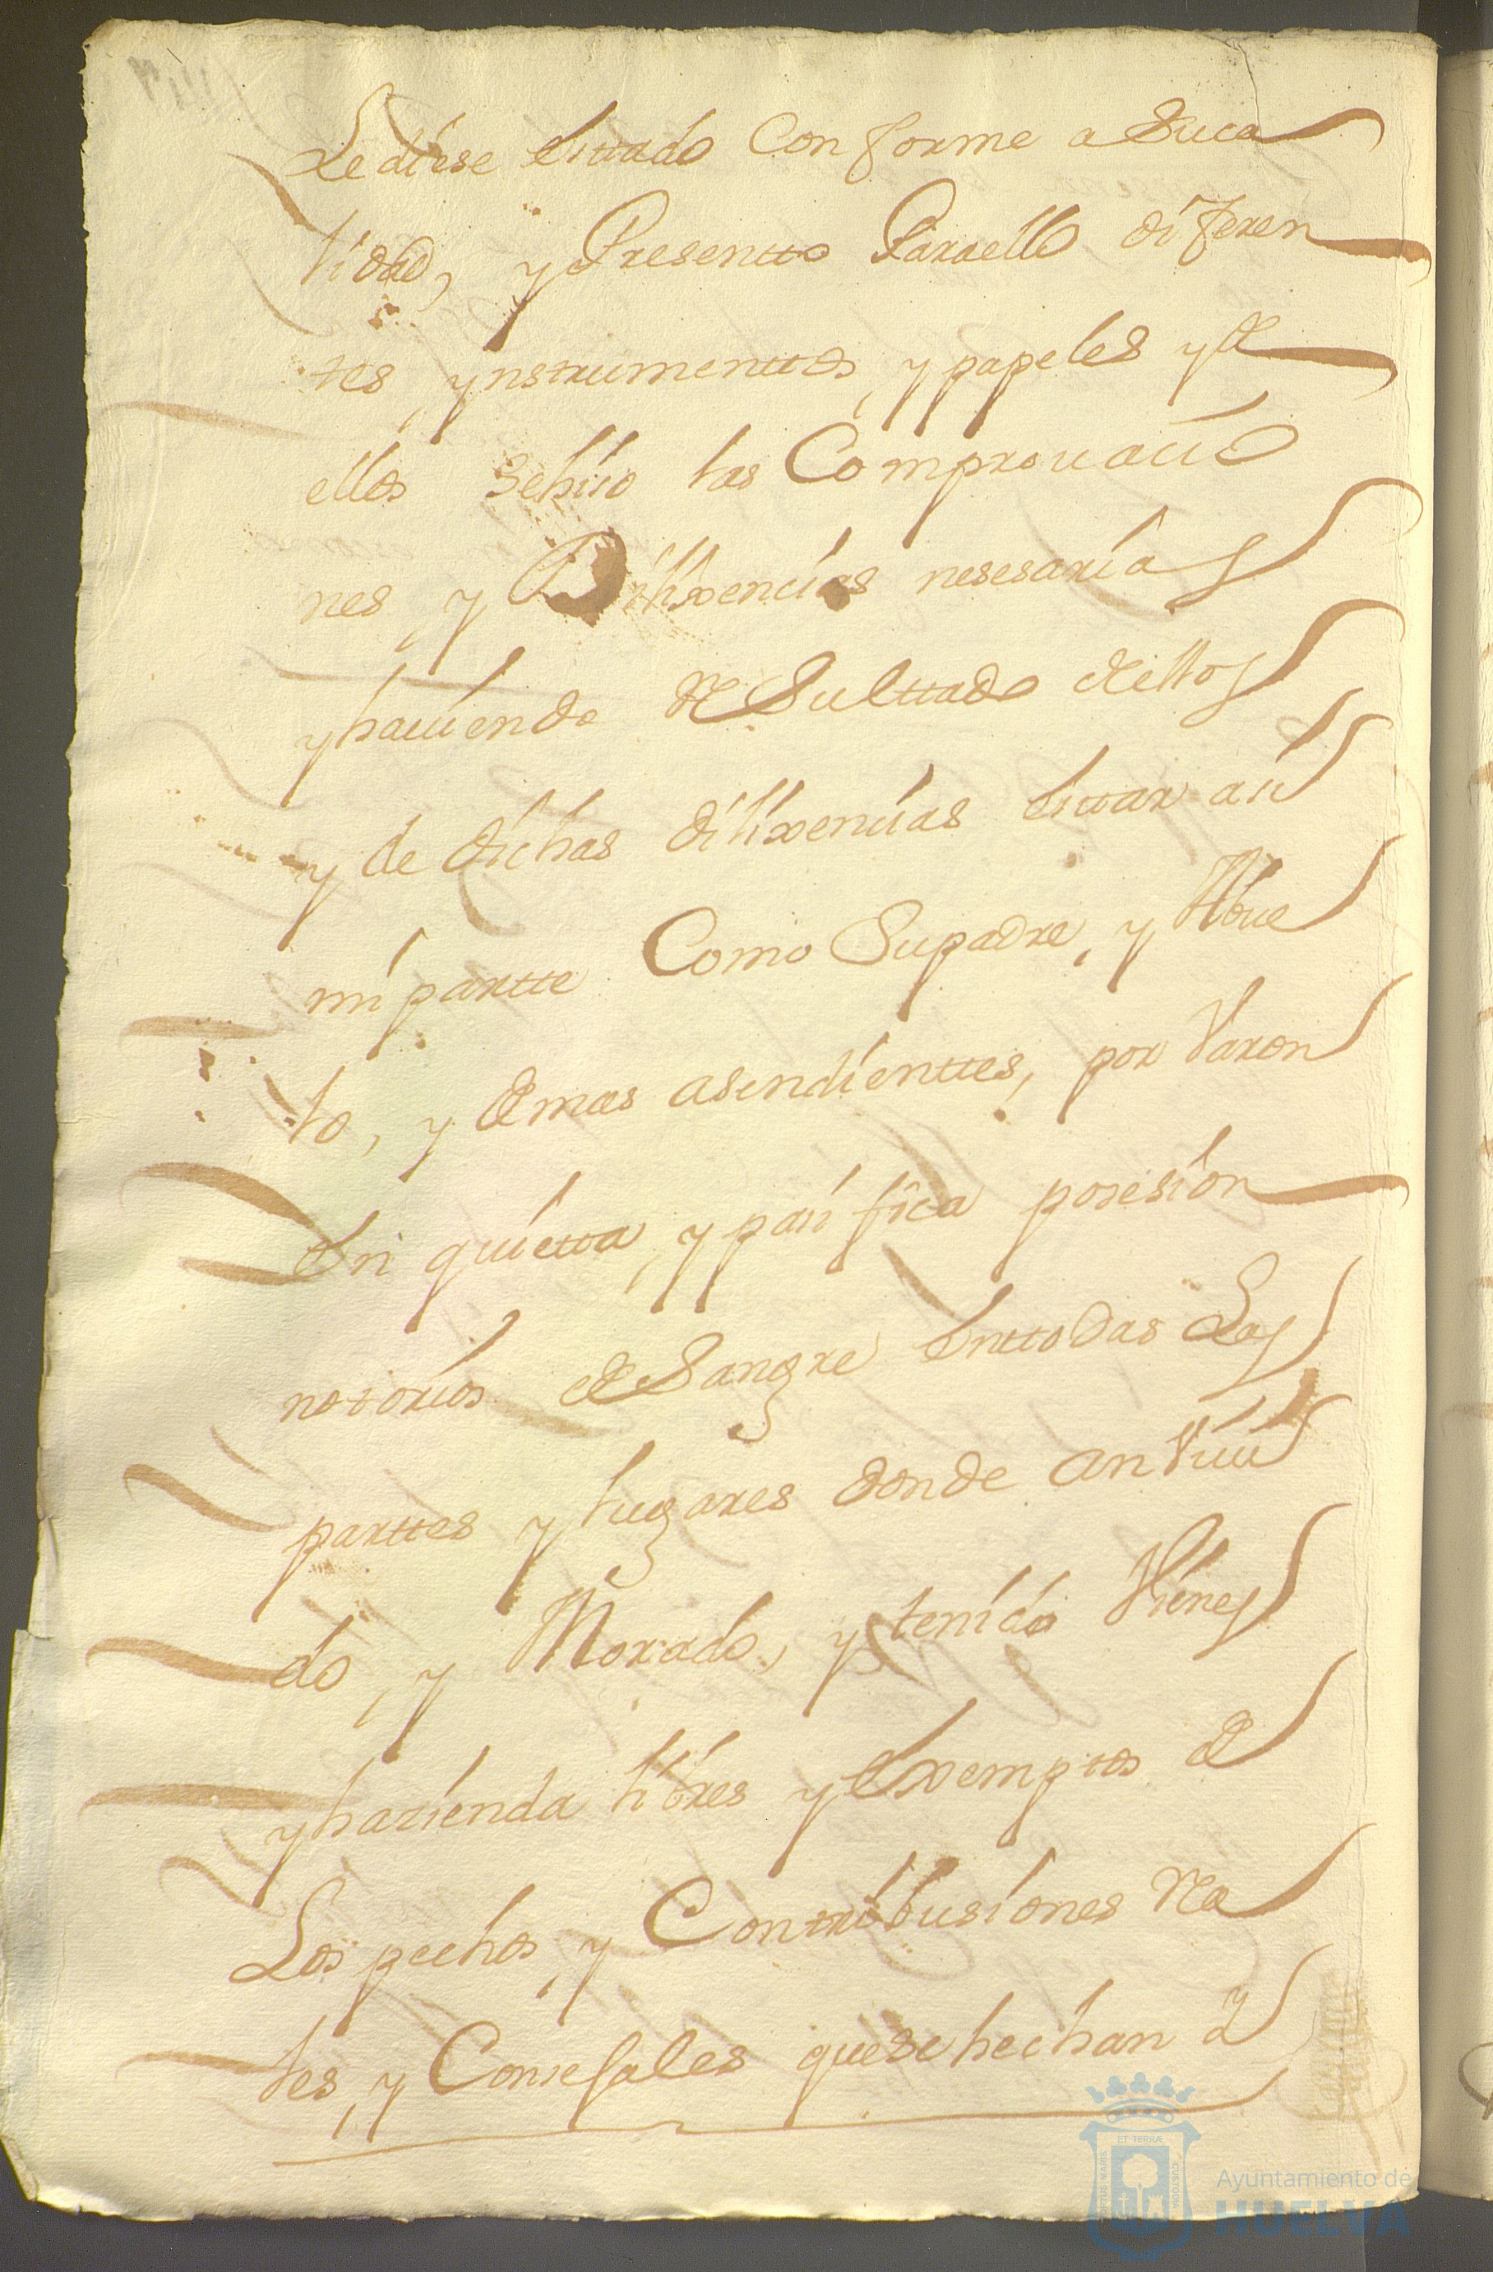 Lediese Estado Conforme a Suca
lidad, y Presento Paraello diferen
tes ynstrumenttos, y papeles y de
ellos sehiio las Comprouaciio
nes, y Dilixencias nesesarias
y hauiendo resulttado dellos
y de dichas dilixencias Estar asi
mi partte Como Supadre, y Abue
lo, y demas asendienttes, por Varon
En quietta, y pasifica posesion
notorios de Sangre Enttodas Las
parttes y lugares donde an Viui
do, y Morado, y tenido Vienes
y hazienda libres y Exemptos de
Los pechos, y Contribusiones Rea
les, y Consejales quese hechan a
Ayuntamiento de
HUELVA